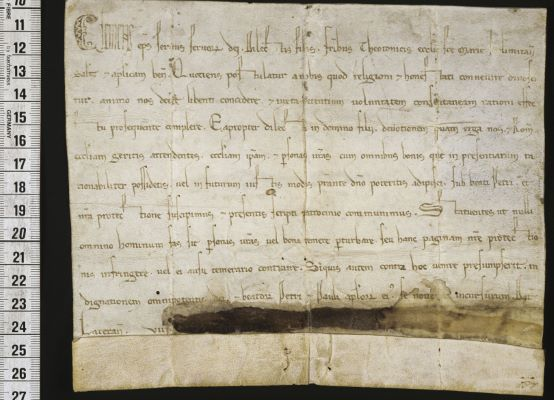 Clemens eps servus servor di. Dilectis filiis, fribus Theotonicis ecclie sce Marie
salt et aplicam ben. Quotiens postulatur a nobis quod religioni et honestati convenire dinosci
tur, animo nos decet libenti concedere et iuxta petentium voluntatem consentaneam rationi effec
tu prosequente complere. Eapropter dilecti in domino filii, devotionem quam erga nos et Rom
eccliam geritis attendentes, eccliam ipam, et psonas vras, cum omnibus bonis, que in presentiarum ra
tionabiliter possidetis, vel in futurum iustis modis prante dno poteritis adipisci, sub beati Petri et
nra protectione suscipimus, et presentis scripti patrocinio communimus. Statuentes ut nulli
omnino hominum fas sit psonas vras vel bona temere pturbare seu hanc paginam nre protectio
nis infringere vel ei ausu temerario contraire. Siquis autem contra hoc venire presumpserit in
dignationem omnipotentis et beator Petri et Pauli aplor ei se noverit incursurum. Dat
Lateran
11
12
13
14
15
16
17
18
19
20
21
22
23
24
25
26
27
GERMANY